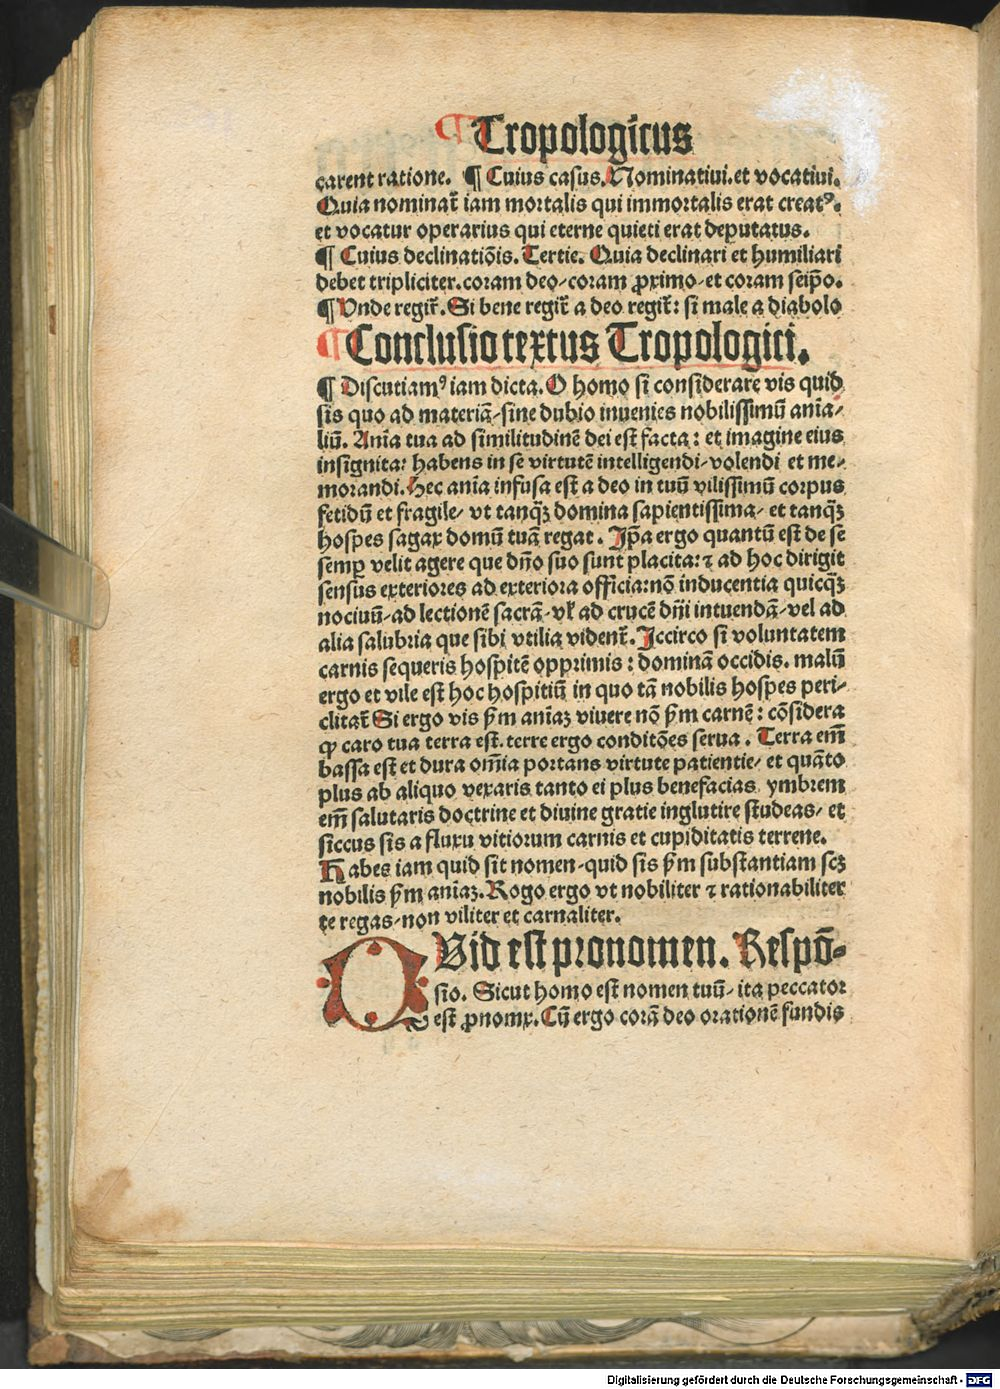 ¶ Tropologicus
carent ratione. ¶ Cuius casus. Nominatiui. et vocatiui.
Quia nominat᷑ iam mortalis qui immortalis erat creatꝰ.
et vocatur operarius qui eterne quieti erat deputatus.
¶ Cuius declinatiõis. Tertie. Quia declinari et humiliari
debet tripliciter. coram deo / coram ꝓximo / et coram seip̄o.
¶ Vnde regit᷑. Si bene regit᷑ a deo regit᷑: si male a diabolo
¶ Conclusio textus Tropologici.
¶ Discutiamꝰ iam dicta. O homo si considerare vis quid
sis quo ad materiã / sine dubio inuenies nobilissimũ anīa/
liũ. Anīa tua ad similitudinẽ dei est facta: et imagine eius
insignita: habens in se virtutẽ intelligendi / volendi et me/
morandi. Hec anīa infusa est a deo in tuũ vilissimũ corpus
fetidũ et fragile / vt tanqȝ domina sapientissima / et tanqȝ
hospes sagax domũ tuã regat. Ip̄a ergo quantũ est de se
semꝑ velit agere que dñо suo sunt placita: ⁊ ad hoc dirigit
sensus exteriores ad exteriora officia: nõ inducentia quicqȝ
nociuũ / ad lectionẽ sacrã / vĺ ad crucẽ dñi intuendã / vel ad
alia salubria que sibi vtilia vident᷑. Iccirco si voluntatem
carnis sequeris hospitẽ opprimis: dominã occidis. malũ
ergo et vile est hoc hospitiũ in quo tã nobilis hospes peri/
clitat᷑ Si ergo vis ẜm anīaȝ viuere nõ ẜm carnẽ: cõsidera
ꝙ caro tua terra est. terre ergo conditões serua. Terra em̄
bassa est et dura om̄ia portans virtute patientie / et quãto
plus ab aliquo vexaris tanto ei plus benefacias ymbrem
em̄ salutaris doctrine et diuine gratie inglutire studeas / et
siccus sis a fluxu vitiorum carnis et cupiditatis terrene.
Habes iam quid sit nomen / quid sis ẜm substantiam scȝ
nobilis ẜm anīaȝ. Rogo ergo vt nobiliter ⁊ rationabiliter
te regas / non viliter et carnaliter.
QVid est pronomen. Respõ/
sio. Sicut homo est nomen tuũ / ita peccator
est ꝓnomx. Cũ ergo corã deo orationẽ fundis
Digitalisierung gefördert durch die Deutsche Forschungsgemeinschaft - DFG